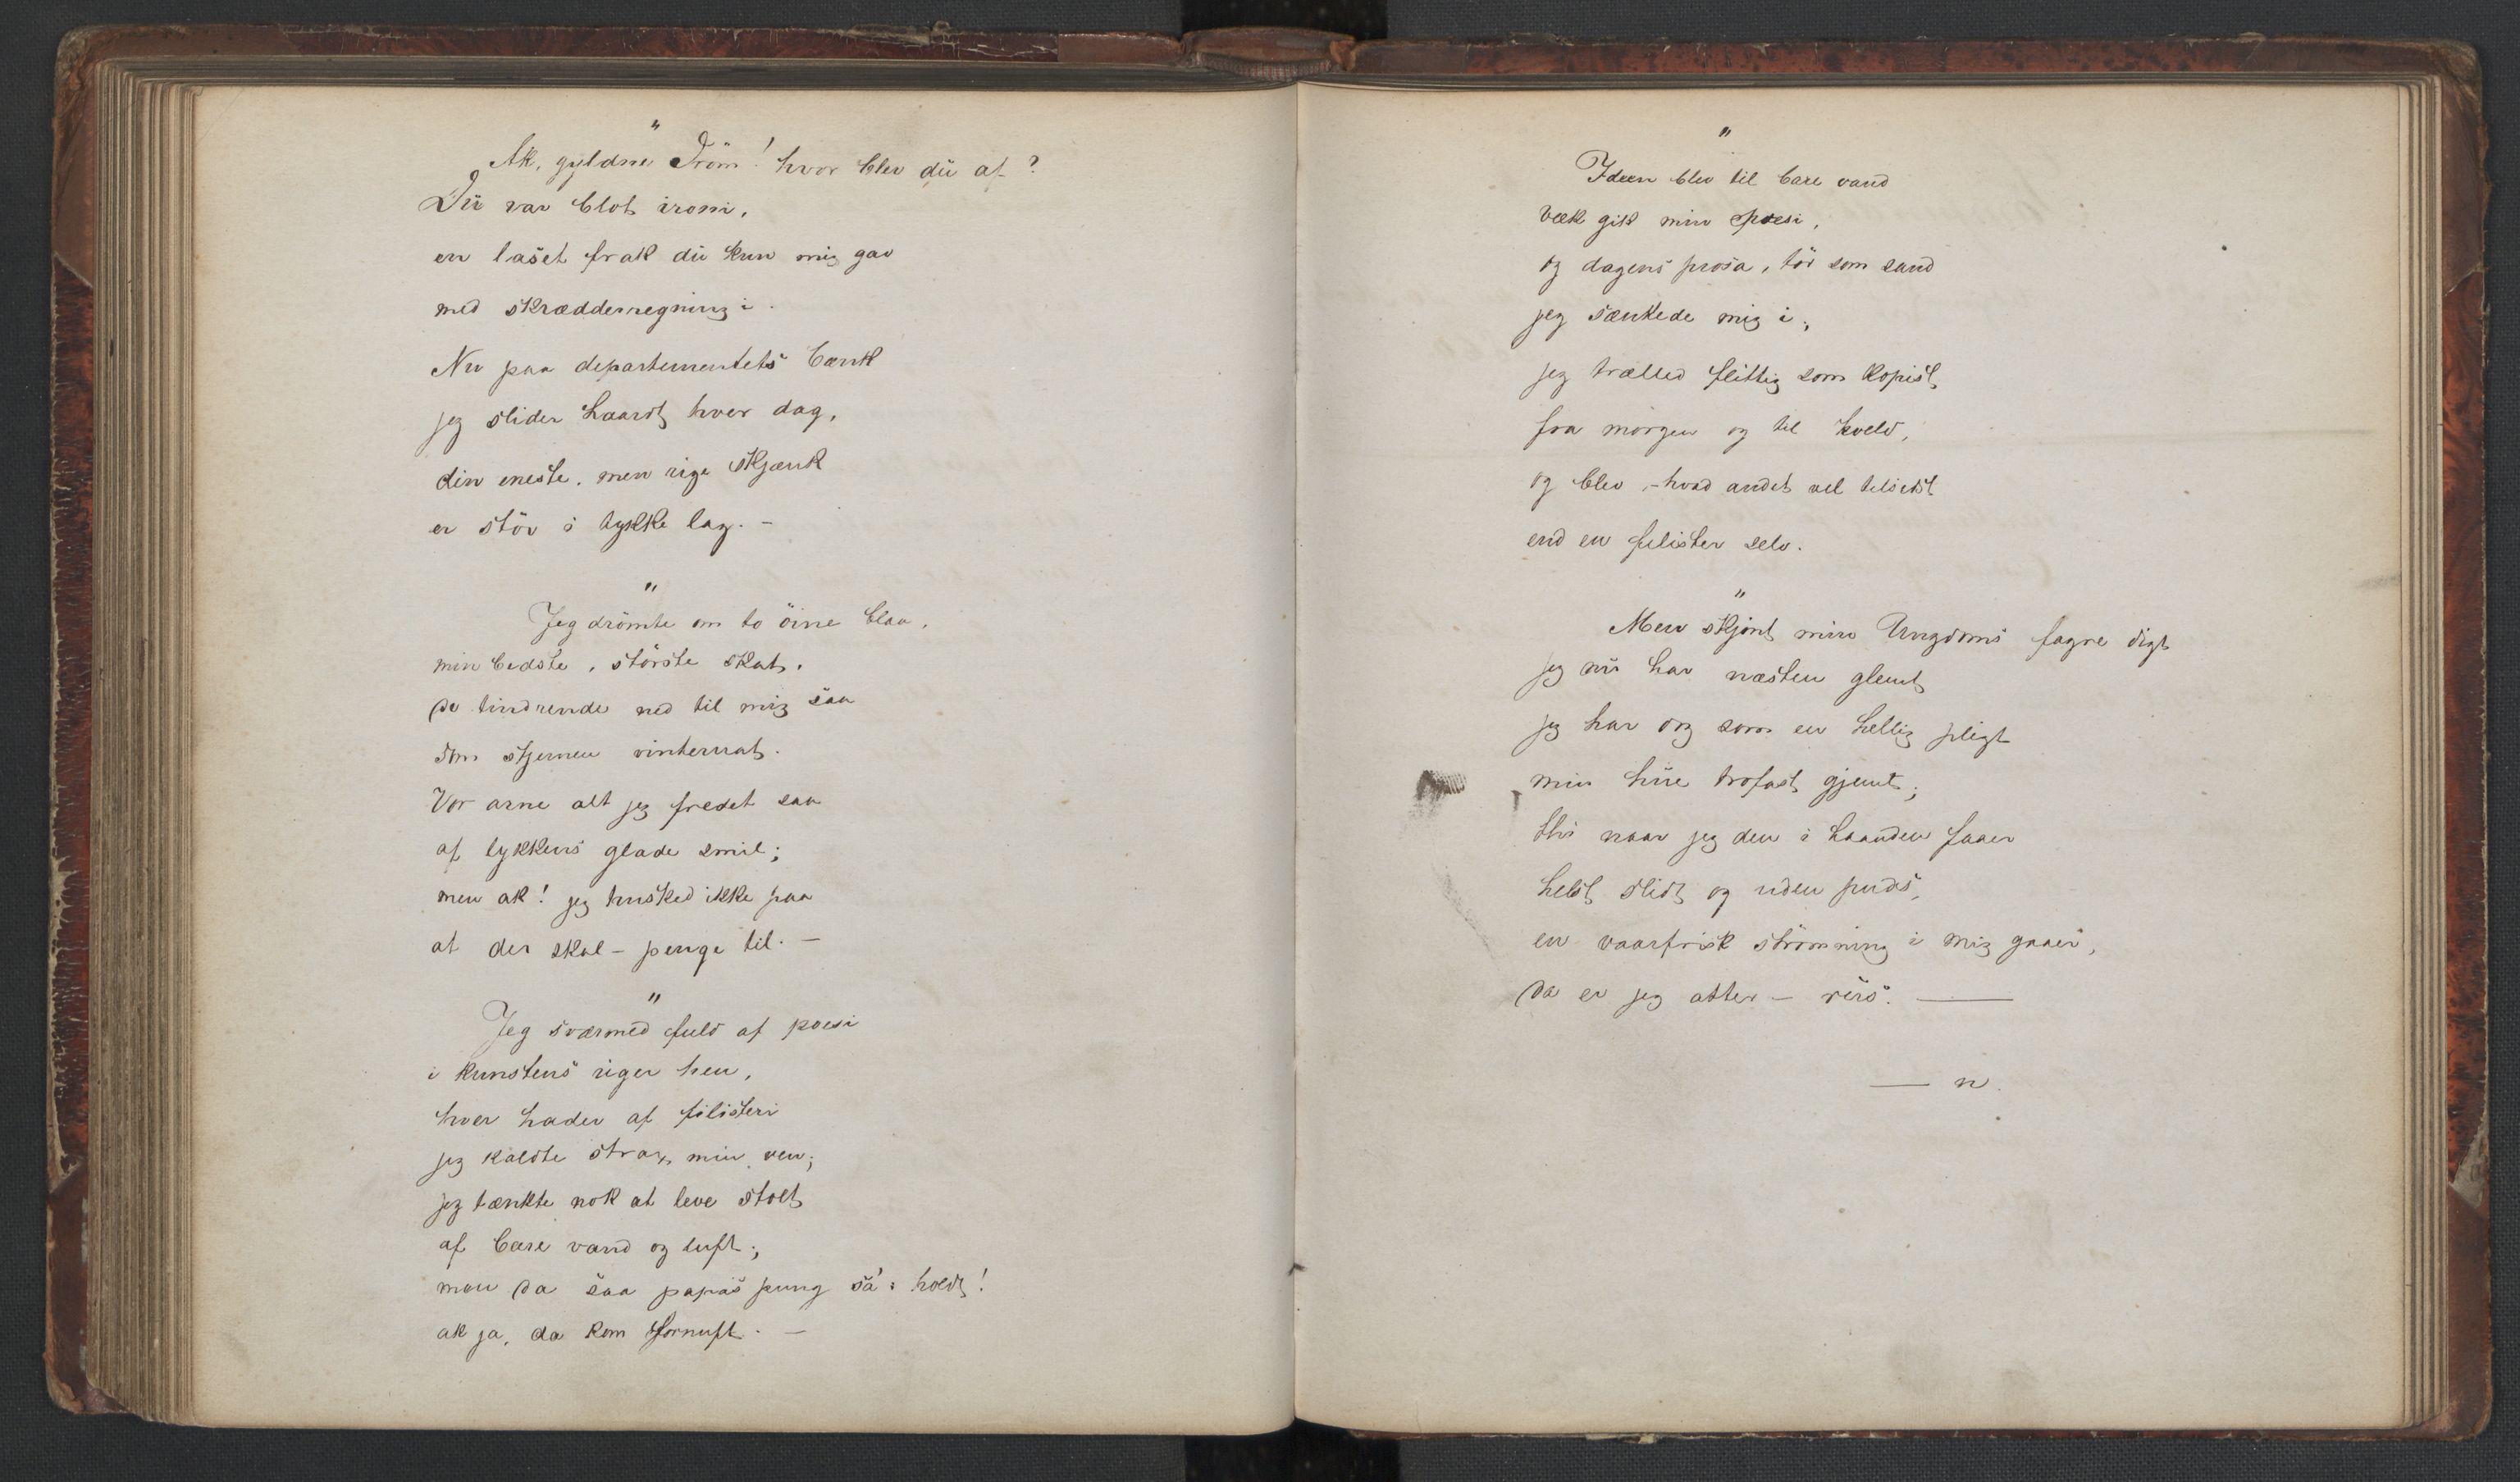 "
Ak, gyldne Dröm! hvor blev du af?
Du var blot ironi,
en laset frak du kun mig gav
med skrædderregning i.
Nu paa departementets bænk
jeg slider haardt hver dag,
din eneste, men rige skjænk
er stöv i tykke lag. –
"
Jeg drömte om to öine blaa,
min bedste, störste skat,
de tindrende ned til mig saa
som stjernen vinternat.
Vor arne alt jeg fredet saa
af lykkens glade smil;
men ak! jeg husked ikke paa
at der skal – penge til. –
"
Jeg sværmed fuld af poesi
i kunstens riger hen,
hver hader af filisteri
jeg kaldte strax min ven;
jeg tænkte nok at leve stolt
af bare vand og luft;
men da saa papas pung sa': holdt!
ak ja, da kom fornuft. –
"
Ideen blev til bare vand
væk gik min poesi,
og dagens prosa, tör som sand
jeg sænkede mig i,
jeg trælled flittig som kopist
fra morgen og til kveld,
og blev, – hvad andet vel tilsidst
end en filister selv.
"
Men skjönt min Ungdoms fagre digt
jeg nu har næsten glemt
jeg har dog som en hellig pligt
min hue trofast gjemt;
thi naar jeg den i haanden faaer
helst slidt og uden puds,
en vaarfrisk strömning i mig gaaer,
da er jeg atter – rus. —
— n.